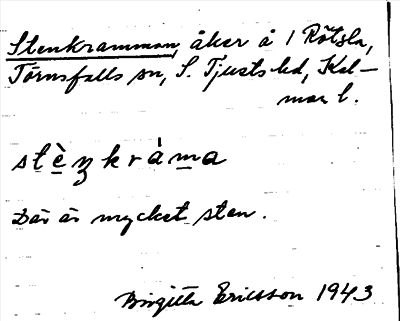 Stenkramman, åker å 1 Rötsla,
Törnsfalls sn, S. Tjusts hd, Kal-
mar l.
stèŋkràma
Där är mycket sten.
Birgitta Ericsson 1943